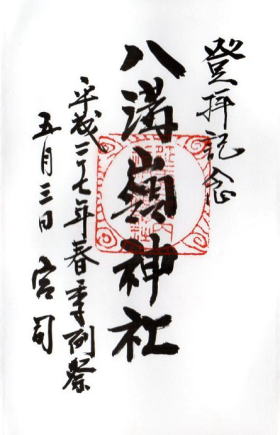 登拝記念
八溝嶺神社
平成二十七年春季例祭
五月三日 宮司